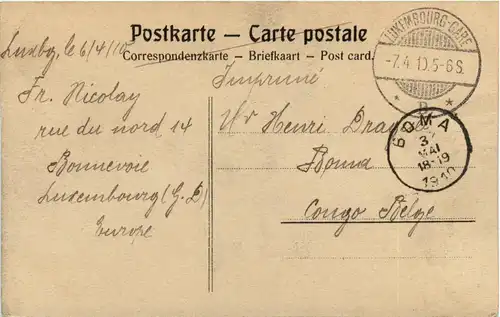 Postkarte — Carte postale
Correspondenzkarte — Briefkaart — Post card.
Luxbg, le 6/4/10
Imprimé
Fr. Nicolay
rue du nord 14
Bonnevoie
Luxembourg (G.D)
Europe
Henri
Boma
Congo Belge
LUXEMBOURG-GARE
-7.4.10.5-6S.
* B *
BOMA
3
MAI
18-19
1910